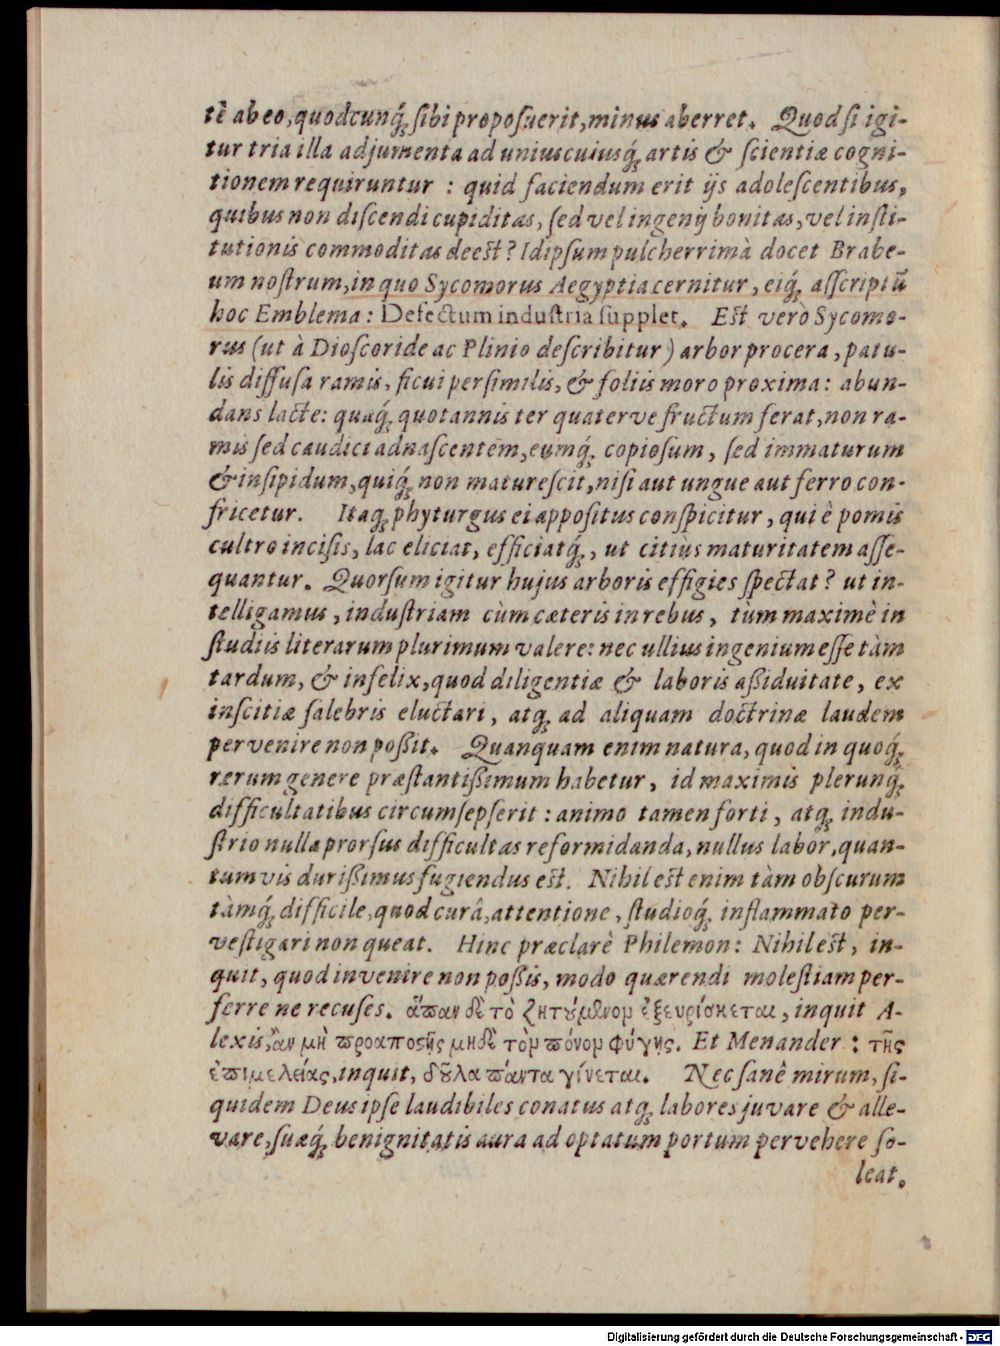 tè ab eo, quodcunq́; ſibi propoſuerit, minus aberret. Quod ſi igi-
tur tria illa adjumenta ad uniuscuiusq́; artis & ſcientiæ cogni-
tionem requiruntur : quid faciendum erit ijs adoleſcentibus,
quibus non diſcendi cupiditas, ſed vel ingenij bonitas, vel inſti-
tutionis commoditas deest? Id ipſum pulcherrimà docet Brabe-
um noſtrum, in quo Sycomorus Aegyptia cernitur, eiq́; aſſcriptū
hoc Emblema: Defectum induſtria ſupplet. Est verò Sycomo-
rus (ut à Dioſcoride ac Plinio deſcribitur) arbor procera, patu-
lis diffuſa ramis, ficui perſimilis, & foliis moro proxima: abun-
dans lacte: quæq́; quotannis ter quaterve fructum ferat, non ra-
mis ſed caudici adnaſcentem, eumq́; copioſum, ſed immaturum
& inſipidum, quiq́; non matureſcit, niſi aut ungue aut ferro con-
fricetur. Itaq; phyturgus ei appoſitus conſpicitur, qui è pomis
cultro inciſis, lac eliciat, efficiatq́;, ut citiùs maturitatem aſſe-
quantur. Quorſum igitur hujus arboris effigies ſpectat? ut in-
telligamus, induſtriam cùm cæteris in rebus, tùm maximè in
ſtudiis literarum plurimum valere: nec ullius ingenium eſſe tàm
tardum, & infelix, quod diligentiæ & laboris aßiduitate, ex
inſcitiæ ſalebris eluctari, atq; ad aliquam doctrinæ laudem
pervenire non poßit. Quanquam enim natura, quod in quoq́;
rerum genere præſtantißimum habetur, id maximis plerunq́;
difficultatibus circumſepſerit : animo tamen forti, atq; indu-
ſtrio nulla prorſus difficultas reformidanda, nullus labor, quan-
tumvis durißimus fugiendus est. Nihil est enim tàm obſcurum
tàmq́; difficile, quod curâ, attentione, ſtudioq́; inflammato per-
veſtigari non queat. Hinc præclarè Philemon: Nihil est, in-
quit, quod invenire non poßis, modo quærendi moleſtiam per-
ferre ne recuſes. ἅπαν δὲ τὸ ζητούμενον ἐξευρίσκεται, inquit A-
lexis, ἂν μὴ προαποστῇς μηδὲ τὸν πόνον φύγῃς. Et Menander : τῆς
ἐπιμελείας, inquit, δοῦλα πάντα γίνεται. Nec ſanè mirum, ſi-
quidem Deus ipſe laudibiles conatus atq; labores juvare & alle-
vare, ſuæq́; benignitatis aura ad optatum portum pervehere ſo-
leat.
Digitalisierung gefördert durch die Deutsche Forschungsgemeinschaft - DFG